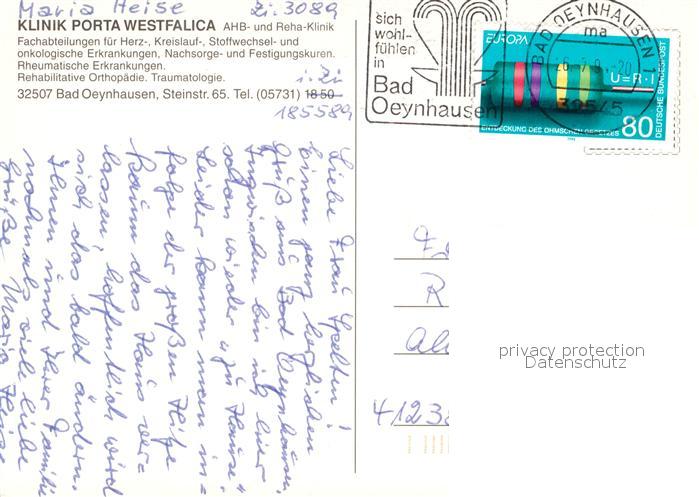 Maria Heise Zi. 3089
KLINIK PORTA WESTFALICA AHB- und Reha-Klinik
Fachabteilungen für Herz-, Kreislauf-, Stoffwechsel- und
onkologische Erkrankungen, Nachsorge- und Festigungskuren.
Rheumatische Erkrankungen.
Rehabilitative Orthopädie. Traumatologie.
32507 Bad Oeynhausen, Steinstr. 65. Tel. (05731) 18 50
i. Zi
185589
Liebe Frau
einen ganz herzlichen
Gruß aus Bad Oeynhausen.
Inzwischen bin ich hier
schon wieder "zu Hause".
Leider kann man in-
folge der großen Hitze
kaum das Haus ver-
lassen, hoffentlich wird
sich das bald ändern.
Ihnen und Ihrer Familie
nochmals viele liebe
Grüße Maria Heise
sich
wohl-
fühlen
in
Bad
Oeynhausen
BAD OEYNHAUSEN 1
ma
32545
EUROPA
U=R·I
ENTDECKUNG DES OHMSCHEN GESETZES
80
DEUTSCHE BUNDESPOST
R
4123
privacy protection
Datenschutz